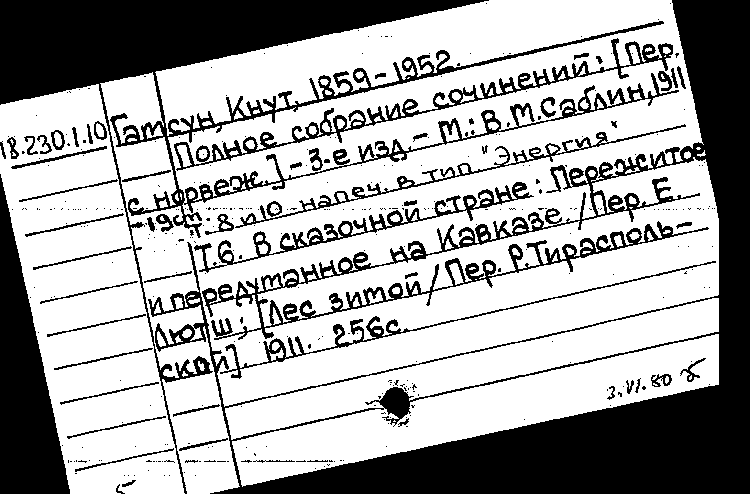 18.230.1.10 Гамсун, Кнут, 1859-1952.
Полное собрание сочинений: [Пер.
с норвеж.]. - 3-е изд. - М.: В.М.Саблин, 1911
- 19см.
Т. 8 и 10 напеч. в тип "Энергия"
Т.6. В сказочной стране: Пережитое
и передуманное на Кавказе. /Пер. Е.
Лютш; [Лес зимой /Пер. Р.Тирасполь-
ской]. 1911. 256с.
3.VI.80